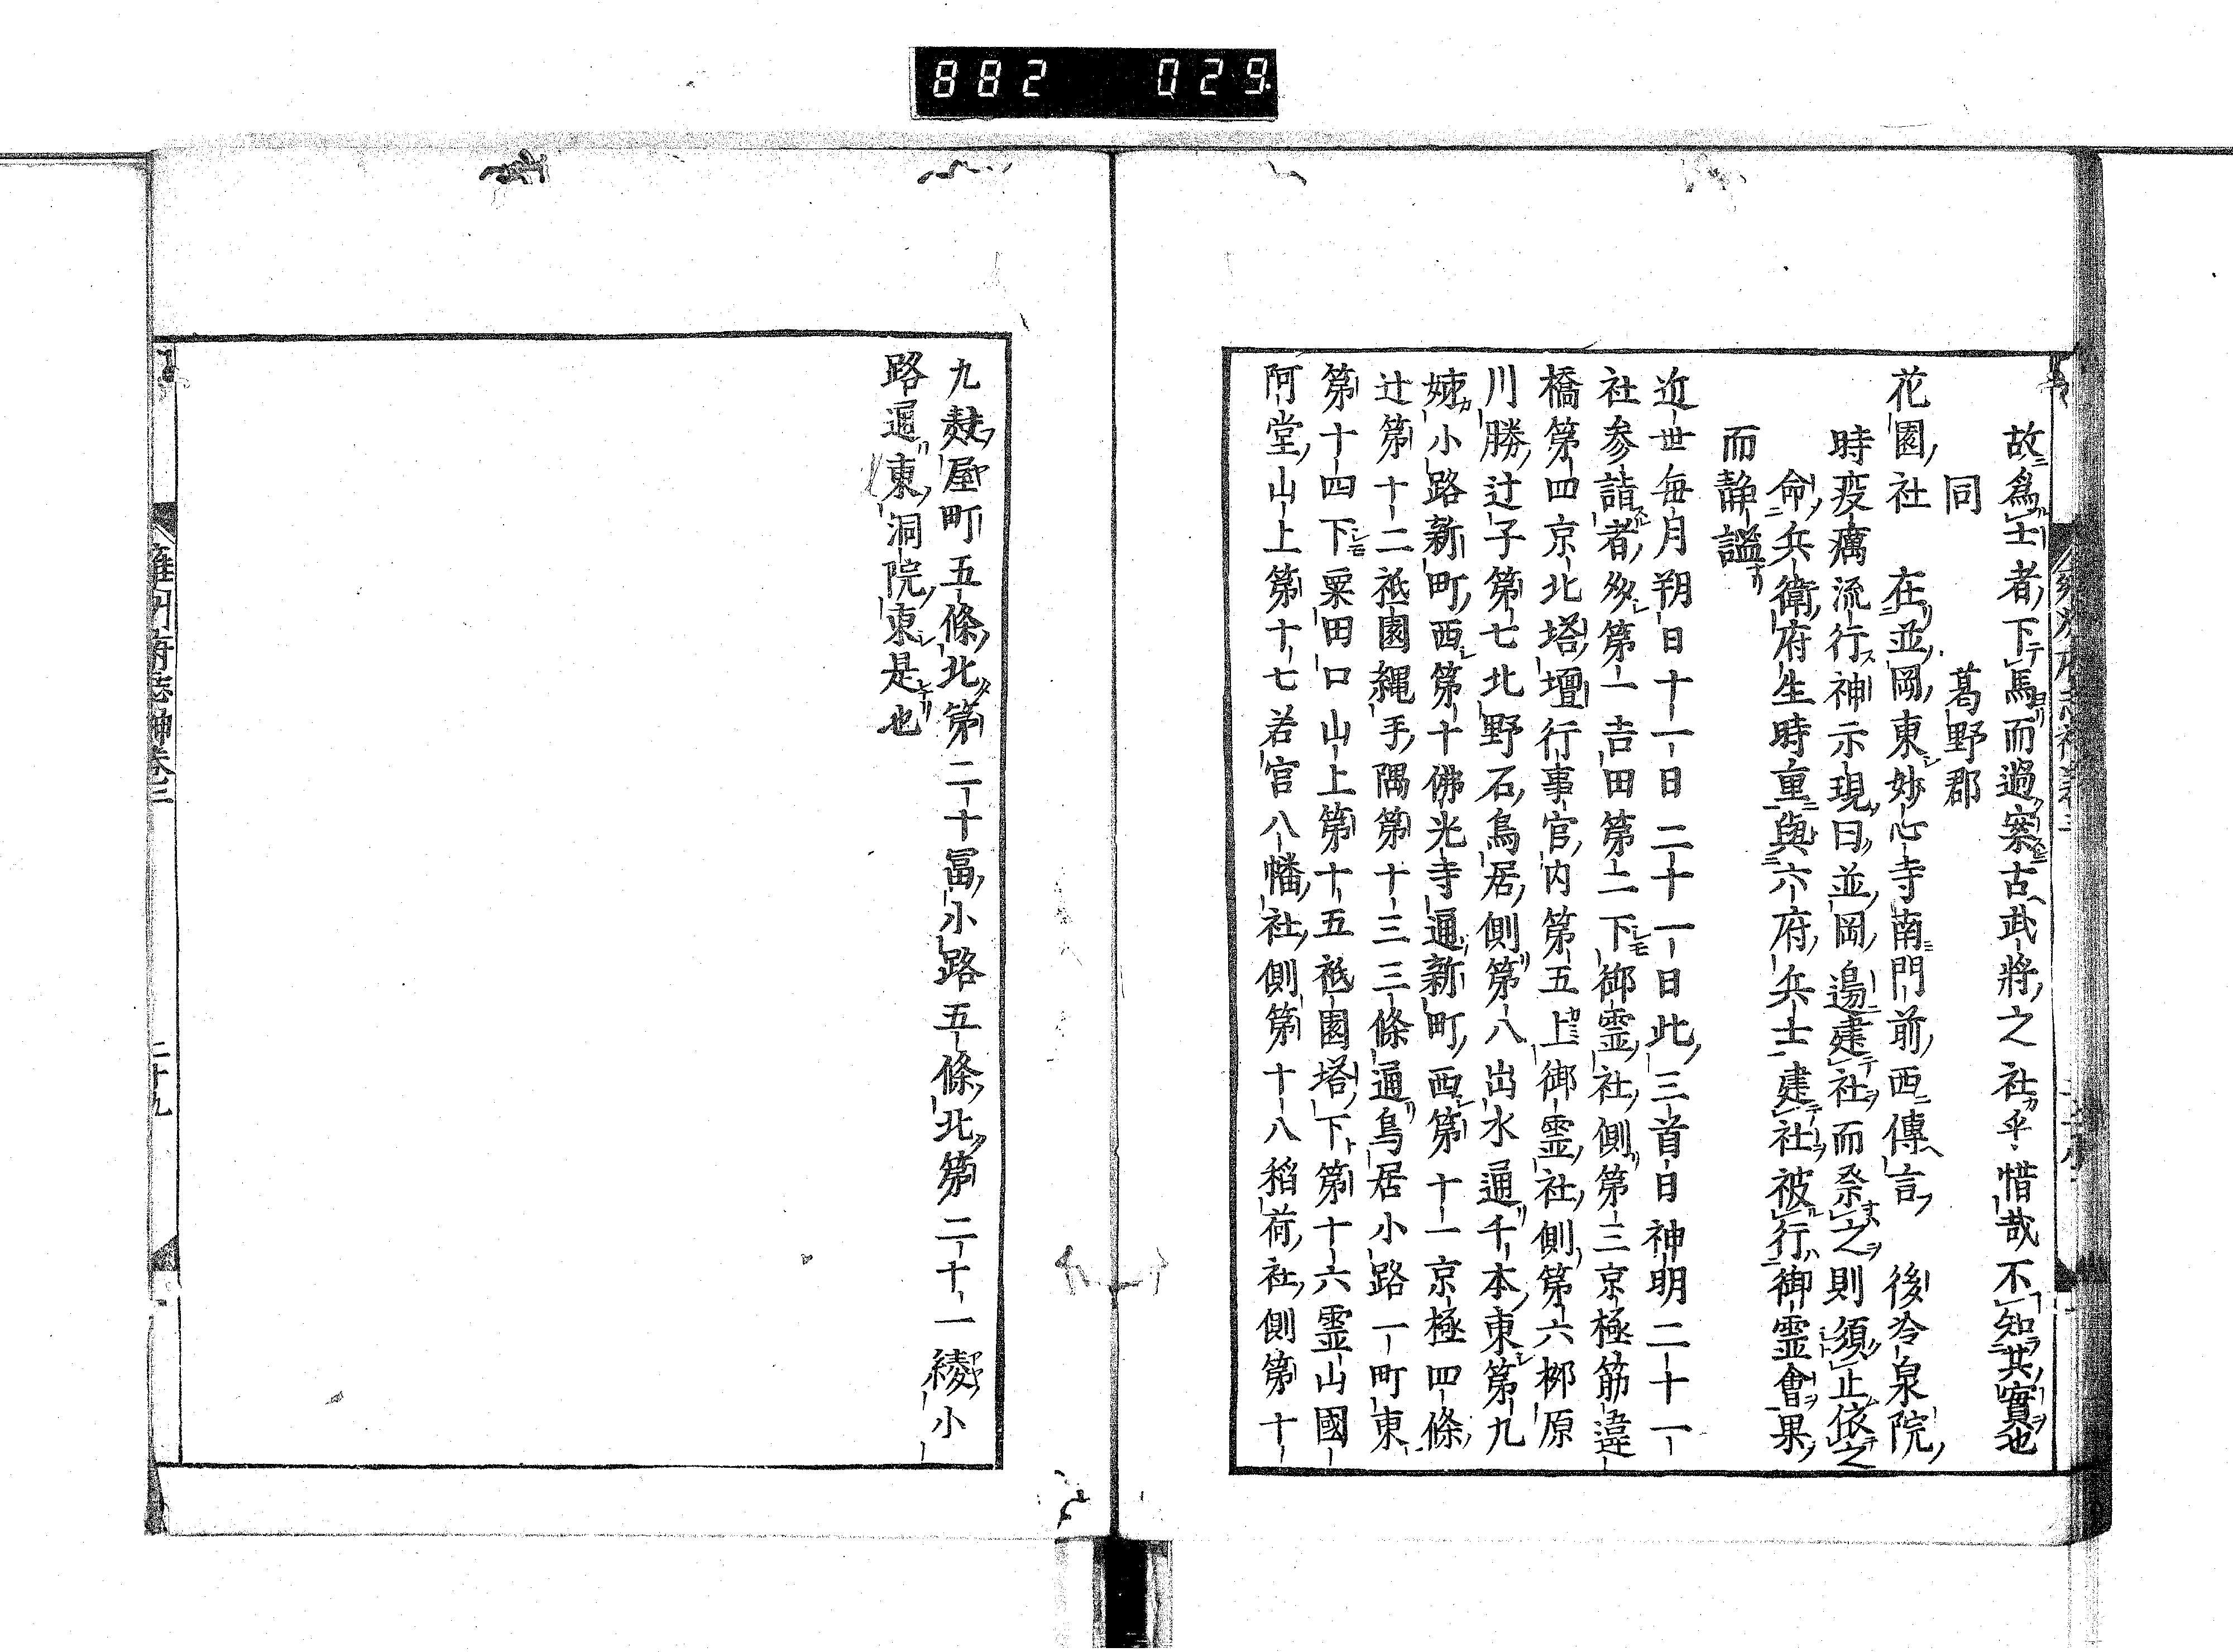 882 029
故爲士者下馬而過案古武將之社乎惜哉不知其實也
同 葛野郡
花園社 在並岡東妙心寺南門前西傳言 後冷泉院
時疫癘流行神示現曰並岡邉建社而祭之則須止依之
命兵衛府生時重與六府兵士建社被行御霊會果
而静謐
近世毎月朔日十一日二十一日此三首日神明二十一
社参詣者多第一吉田第二下御霊社側第三京極筋違
橋第四京北塔壇行事官内第五上御霊社側第六栁原
川勝辻子第七北野石鳥居側第八出水通千本東第九
姉小路新町西第十佛光寺通新町西第十一京極四條
辻第十二祇園縄手隅第十三三條通鳥居小路一町東
第十四下粟田口山上第十五祗園塔下第十六霊山國
阿堂山上第十七若宮八幡社側第十八稻荷社側第十
九麩屋町五條北第二十冨小路五條北第二十一綾小
路通東洞院東是也
雍州府志神卷三 二十九